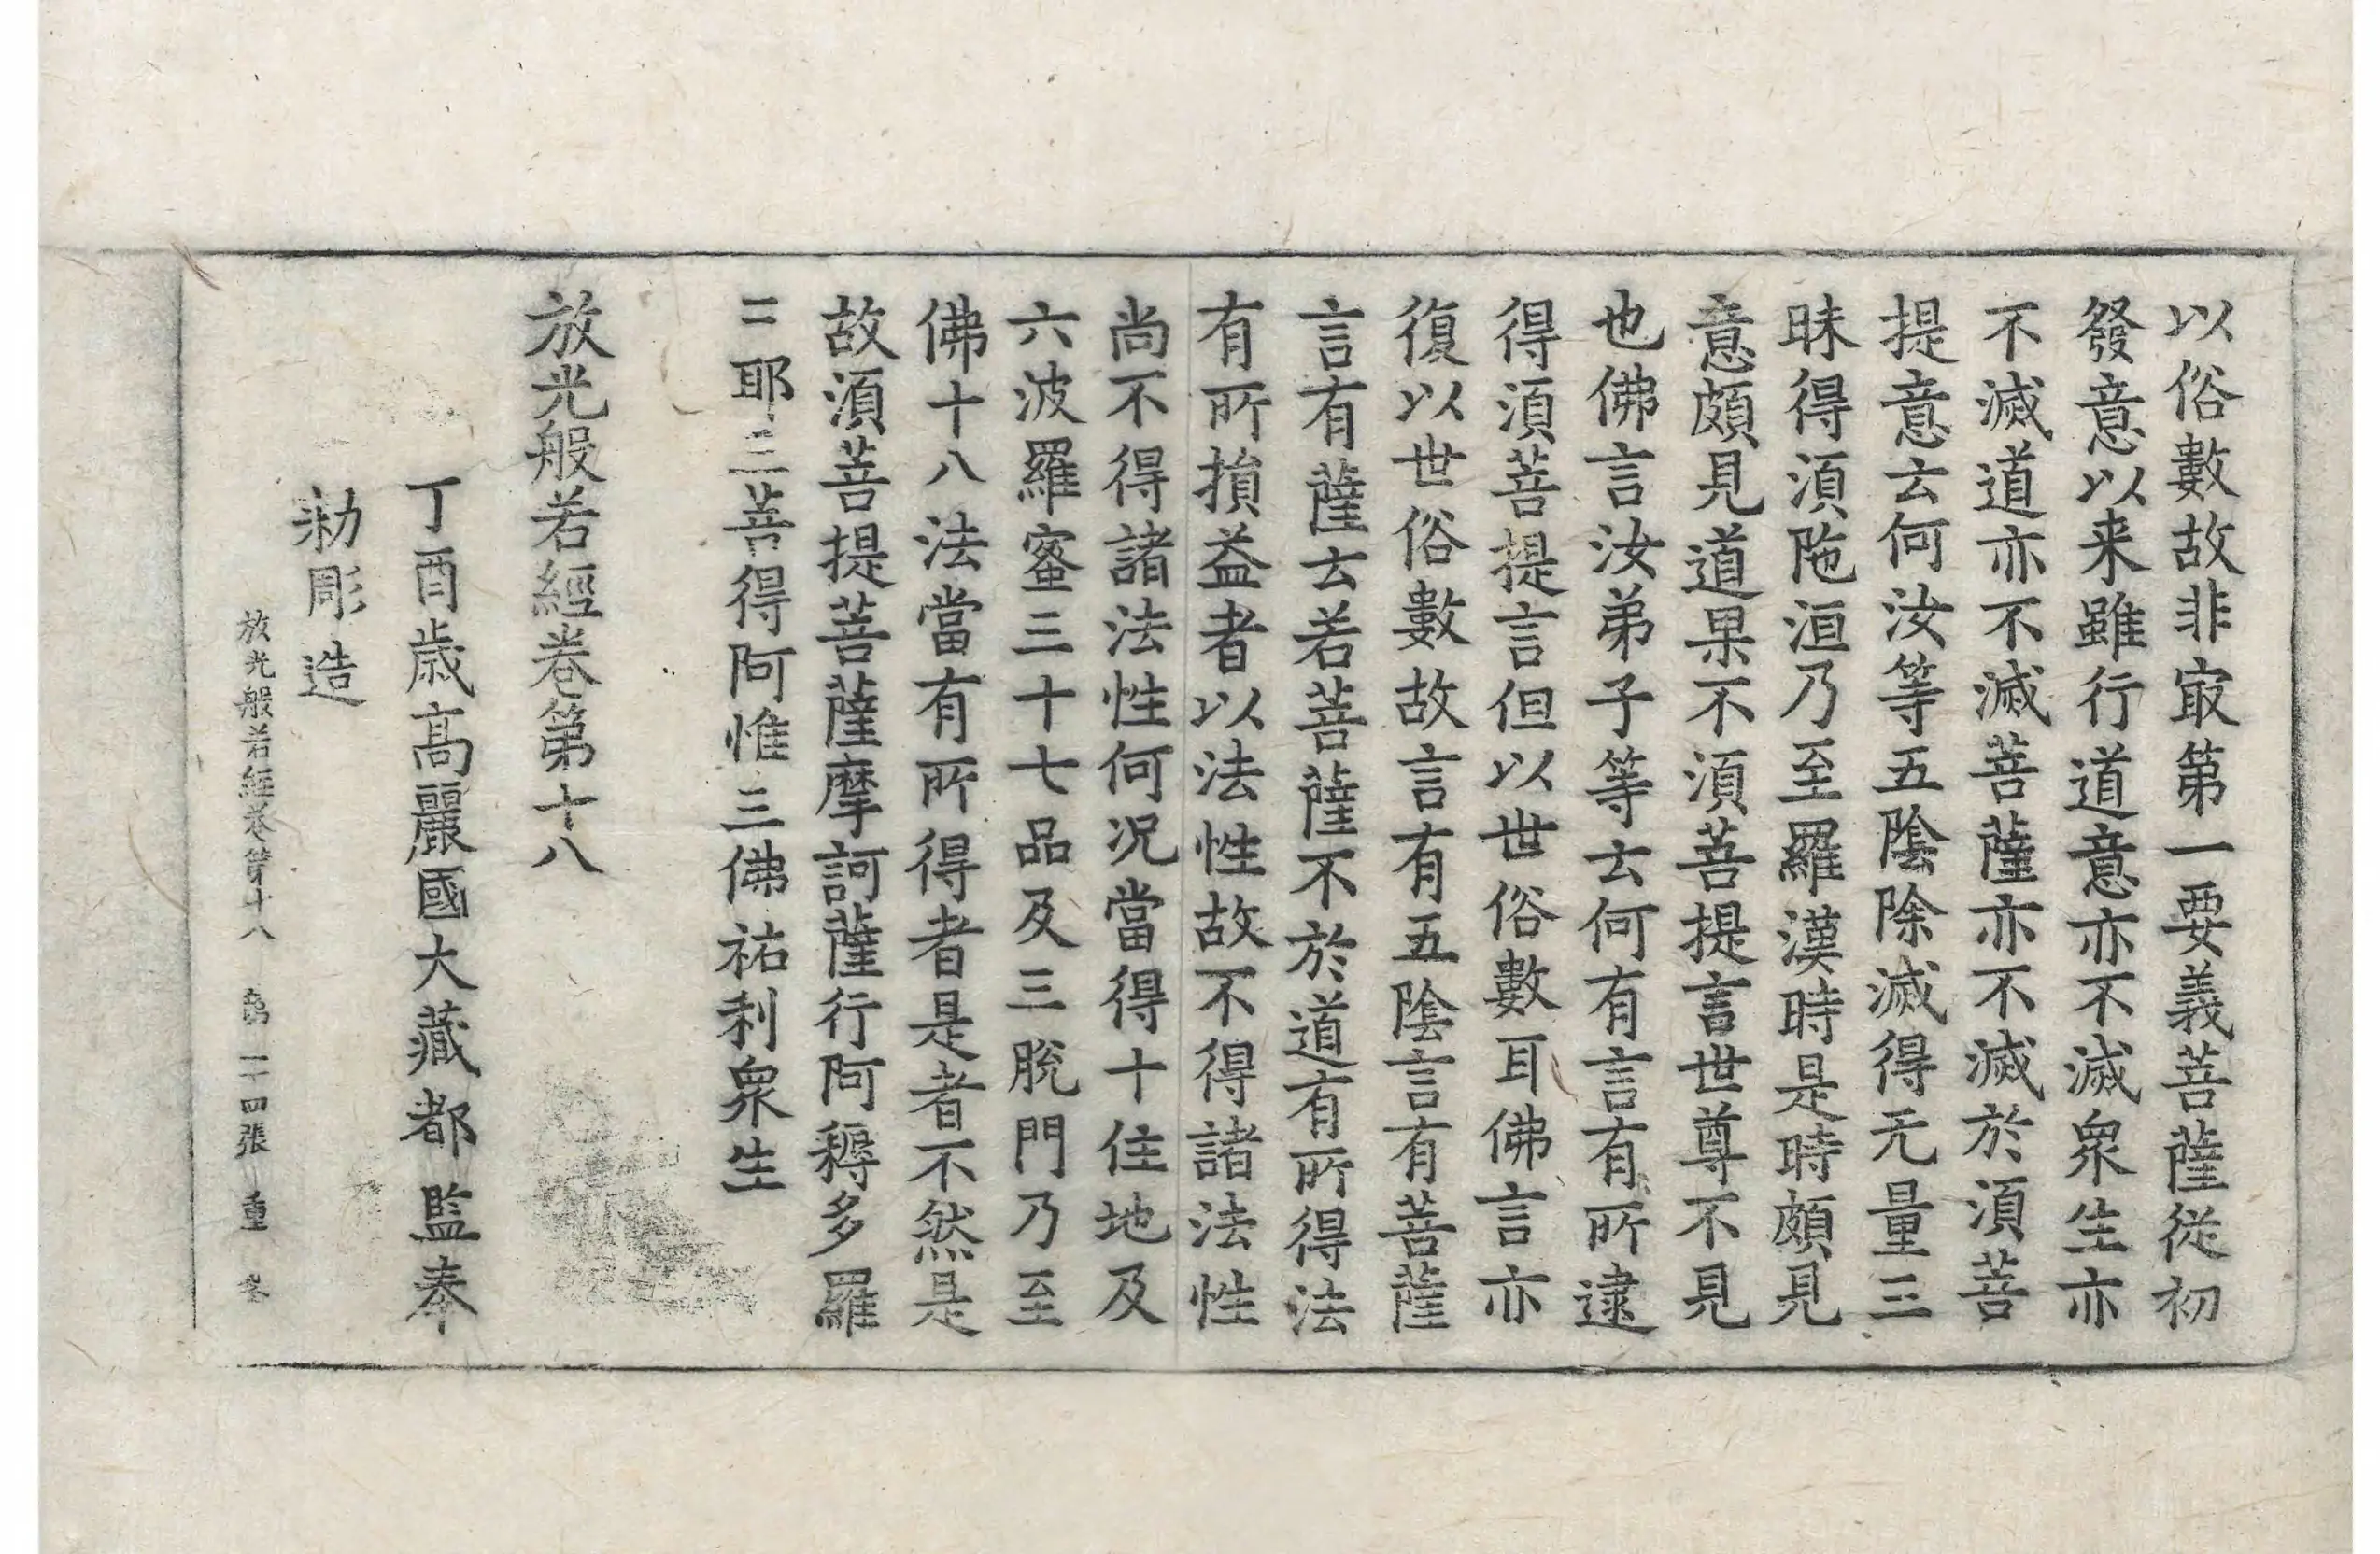 以俗數故非㝡第一要義菩薩從初
發意以来雖行道意亦不滅衆生亦
不滅道亦不滅菩薩亦不滅於湏菩
提意云何汝等五陰除滅得无量三
昧得湏陁洹乃至羅漢時是時頗見
意頗見道果不湏菩提言世尊不見
也佛言汝弟子等云何有言有所逮
得湏菩提言但以世俗數耳佛言亦
復以世俗數故言有五陰言有菩薩
言有薩云若菩薩不於道有所得法
有所損益者以法性故不得諸法性
尚不得諸法性何况當得十住地及
六波羅蜜三十七品及三脫門乃至
佛十八法當有所得者是者不然是
故湏菩提菩薩摩訶薩行阿耨多羅
三耶三菩得阿惟三佛祐利衆生
放光般若經卷第十八
丁酉歲高麗國大藏都監奉
勅彫造
放光般若經卷第十八 二十四張 重